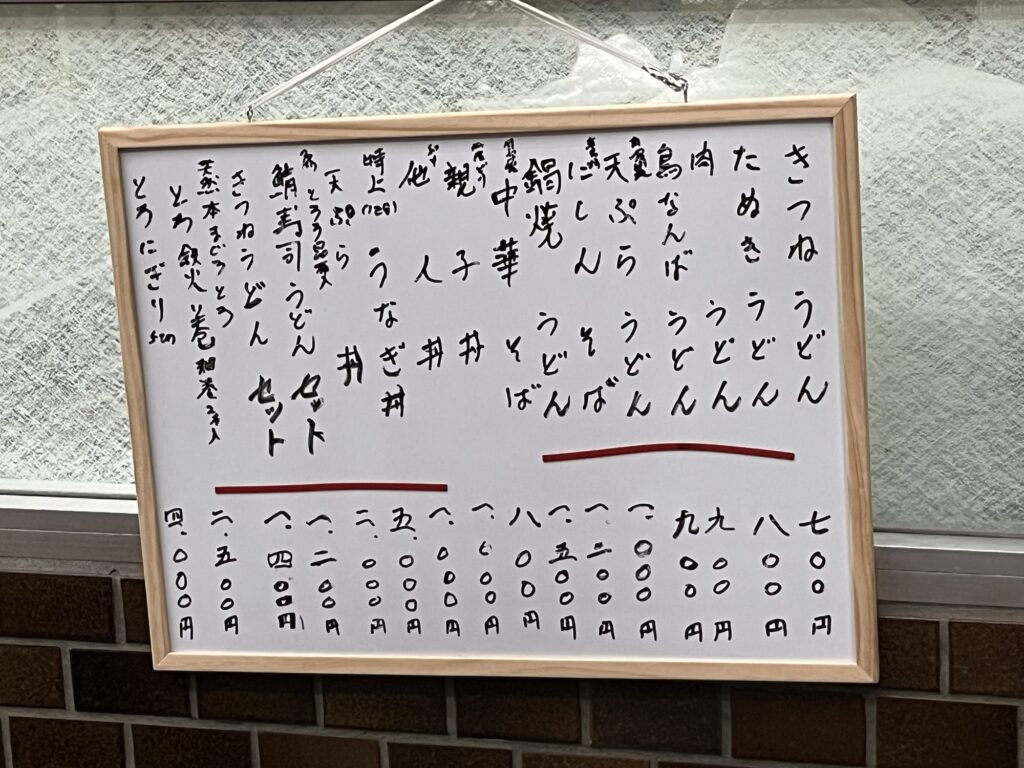 きつねうどん 七〇〇円
たぬきうどん 八〇〇円
肉うどん 九〇〇円
鳥なんばうどん 九〇〇円
天ぷらうどん 一.〇〇〇円
にしんそば 一.二〇〇円
鍋焼うどん 一.五〇〇円
中華そば 八〇〇円
親子丼 一.〇〇〇円
他人丼 一.〇〇〇円
特上 うなぎ丼 五.〇〇〇円
天ぷら丼 二.〇〇〇円
とろろ昆布
鯖寿司うどんセット 一.二〇〇円
きつねうどんセット 一.四〇〇円
天然本まぐろとろ
とろ鉄火巻 細巻2本入 二.五〇〇円
とろにぎり 四.〇〇〇円